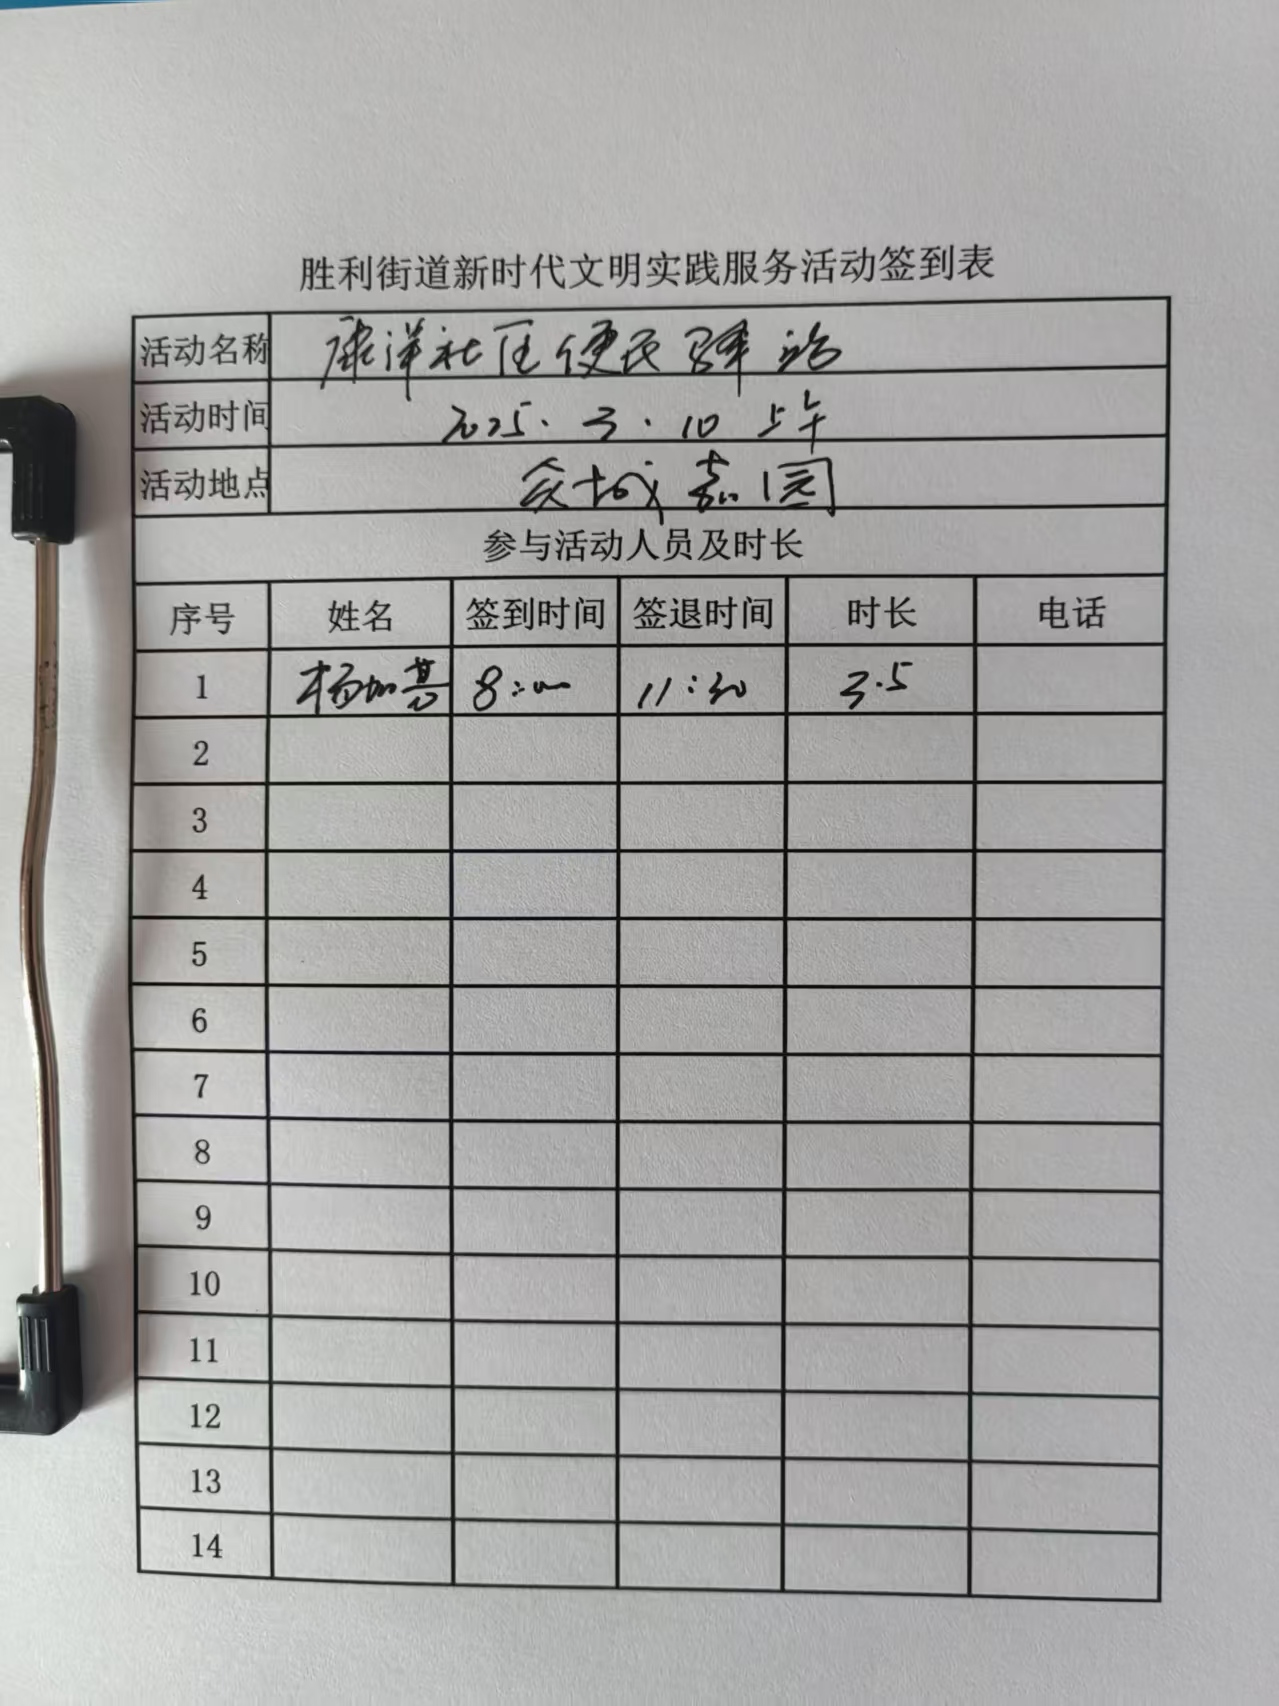 胜利街道新时代文明实践服务活动签到表
活动名称 康洋社区便民驿站
活动时间 2025.3.10 上午
活动地点 众城嘉园
参与活动人员及时长
序号 姓名 签到时间 签退时间 时长 电话
1 杨加基 8:00 11:30 3.5
2
3
4
5
6
7
8
9
10
11
12
13
14